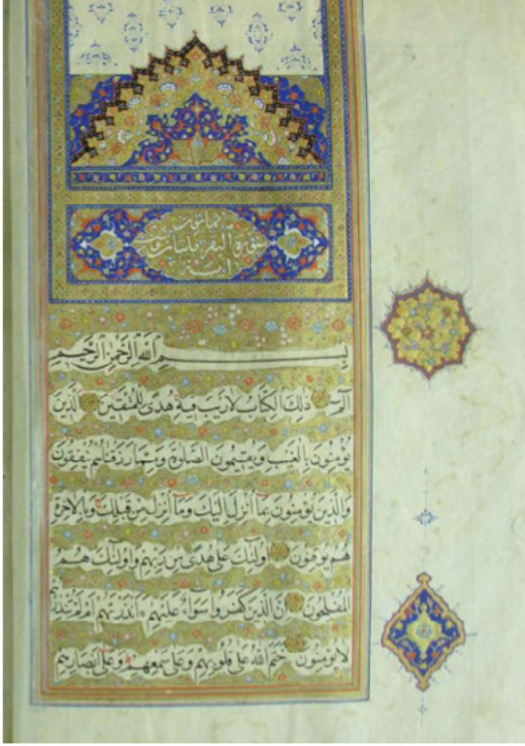 سورة البقرة مائتان وست
اية
بسم الله الرحمن الرحيم
الم ذلك الكتاب لا ريب فيه هدى للمتقين الذين
يؤمنون بالغيب ويقيمون الصلوة ومما رزقناهم ينفقون
والذين يؤمنون بما انزل اليك وما انزل من قبلك وبالاخرة
هم يوقنون اولئك على هدى من ربهم واولئك هم
المفلحون ان الذين كفروا سواء عليهم ءانذرتهم ام لم تنذرهم
لا يؤمنون ختم الله على قلوبهم وعلى سمعهم وعلى ابصارهم